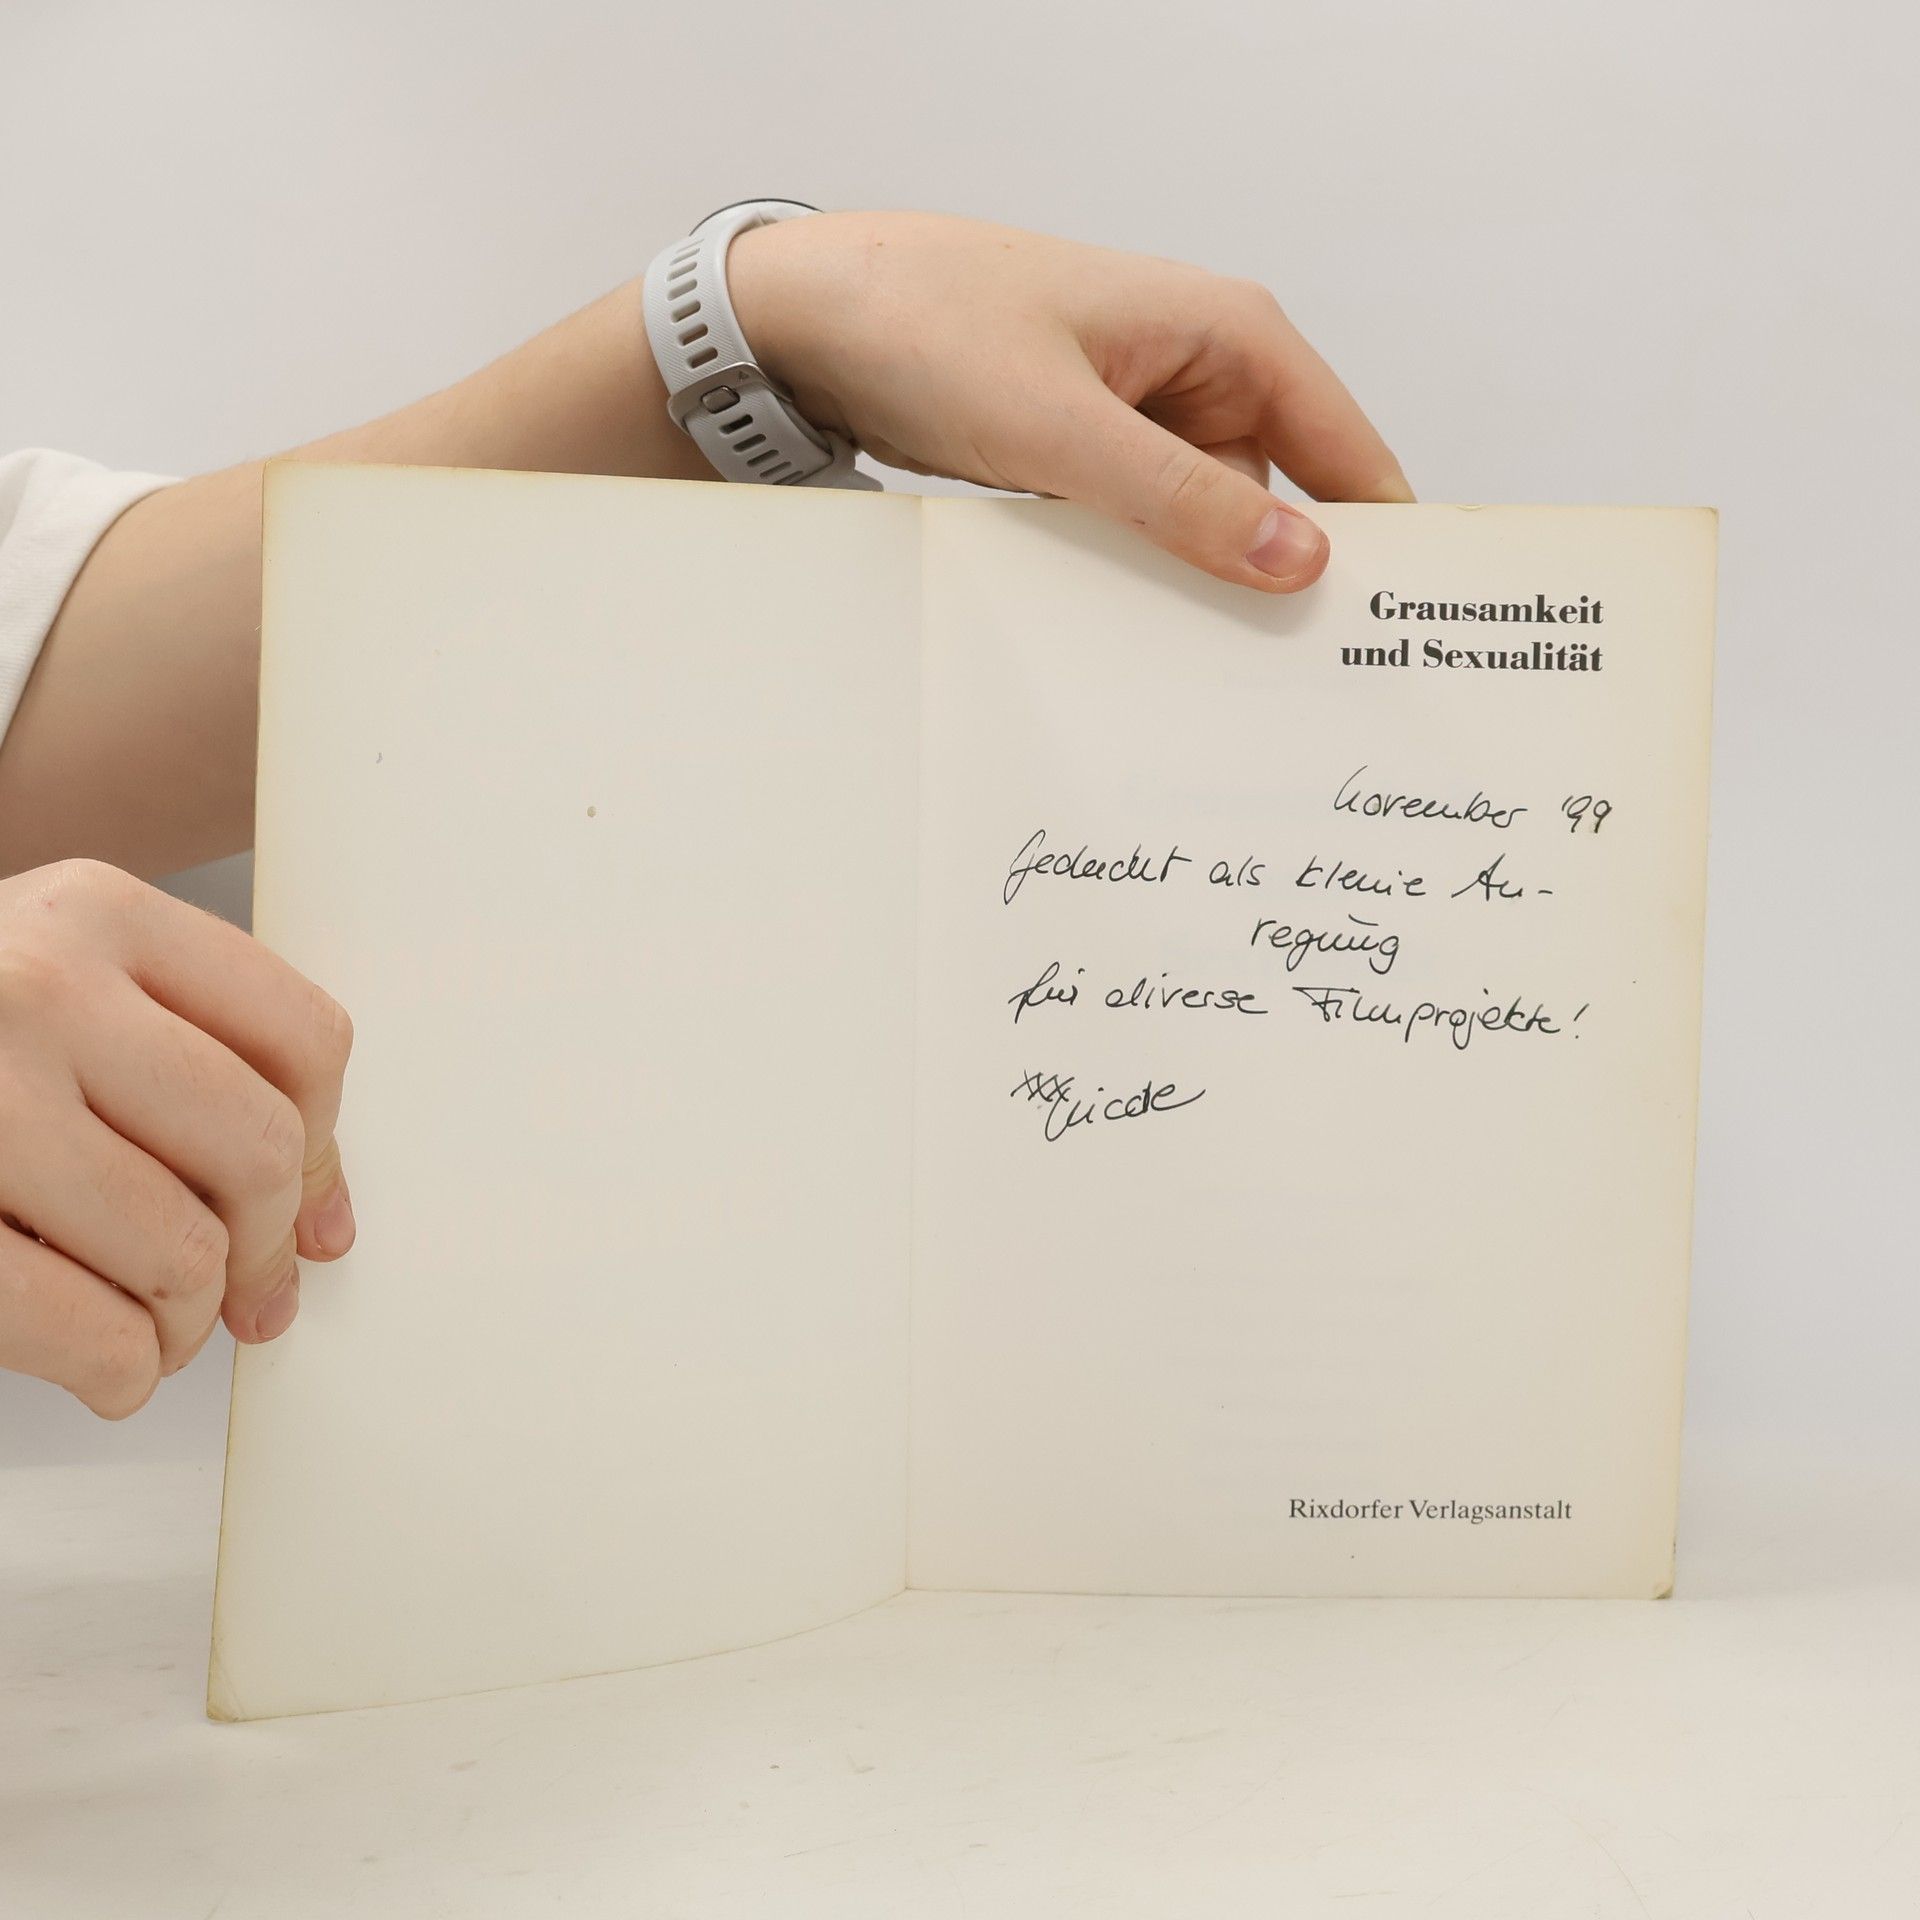 Grausamkeit
und Sexualität
November '99
Gedacht als kleine An-
regung
für diverse Filmprojekte!
xxx Nicole
Rixdorfer Verlagsanstalt